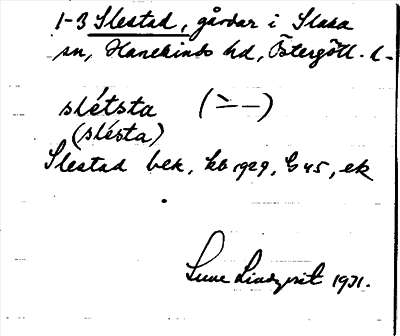 1-3 Slestad, gårdar i Slaka
sn, Hanekinds hd, Östergötl. l-
slétsta (´ — –)
(slésta)
Slestad bek, kb 1929, G 45, ek
Sune Lindqvist 1931.